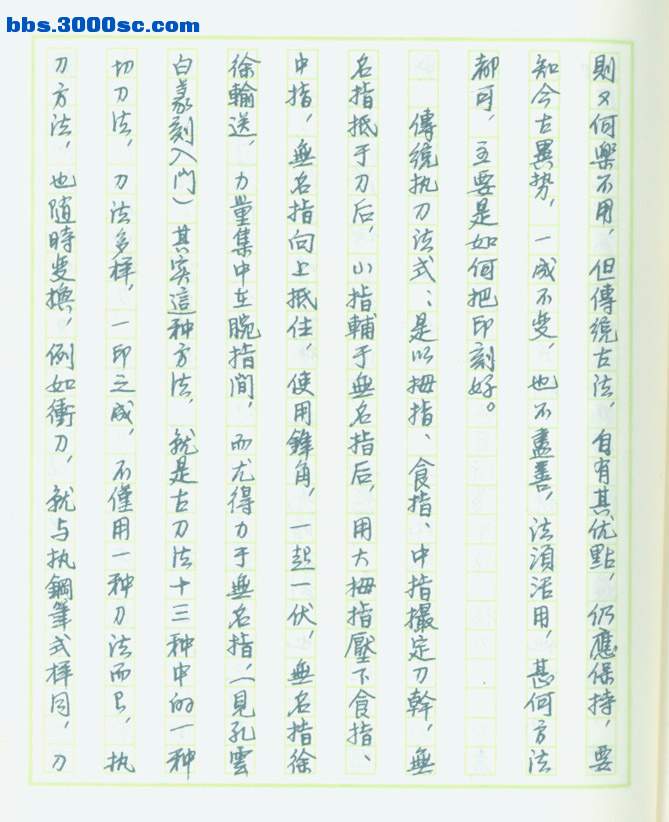 bbs.3000sc.com
則又何樂不用，但傳統古法，自有其优點，仍應保持，要
知今古異势，一成不变，也不盡善，法須活用，甚何方法
都可，主要是如何把印刻好。
傳統执刀法式：是以拇指、食指、中指撮定刀幹，無
名指抵于刀后，小指輔于無名指后，用大拇指壓下食指、
中指，無名指向上抵住，使用鋒角，一起一伏，無名指徐
徐輸送，力量集中在腕指間，而尤得力于無名指，（見孔雲
白篆刻入门）其实這种方法，就是古刀法十三种中的一种
切刀法，刀法多样，一印之成，不僅用一种刀法而已，执
刀方法，也随時变换，例如衝刀，就与执鋼筆式样同，刀